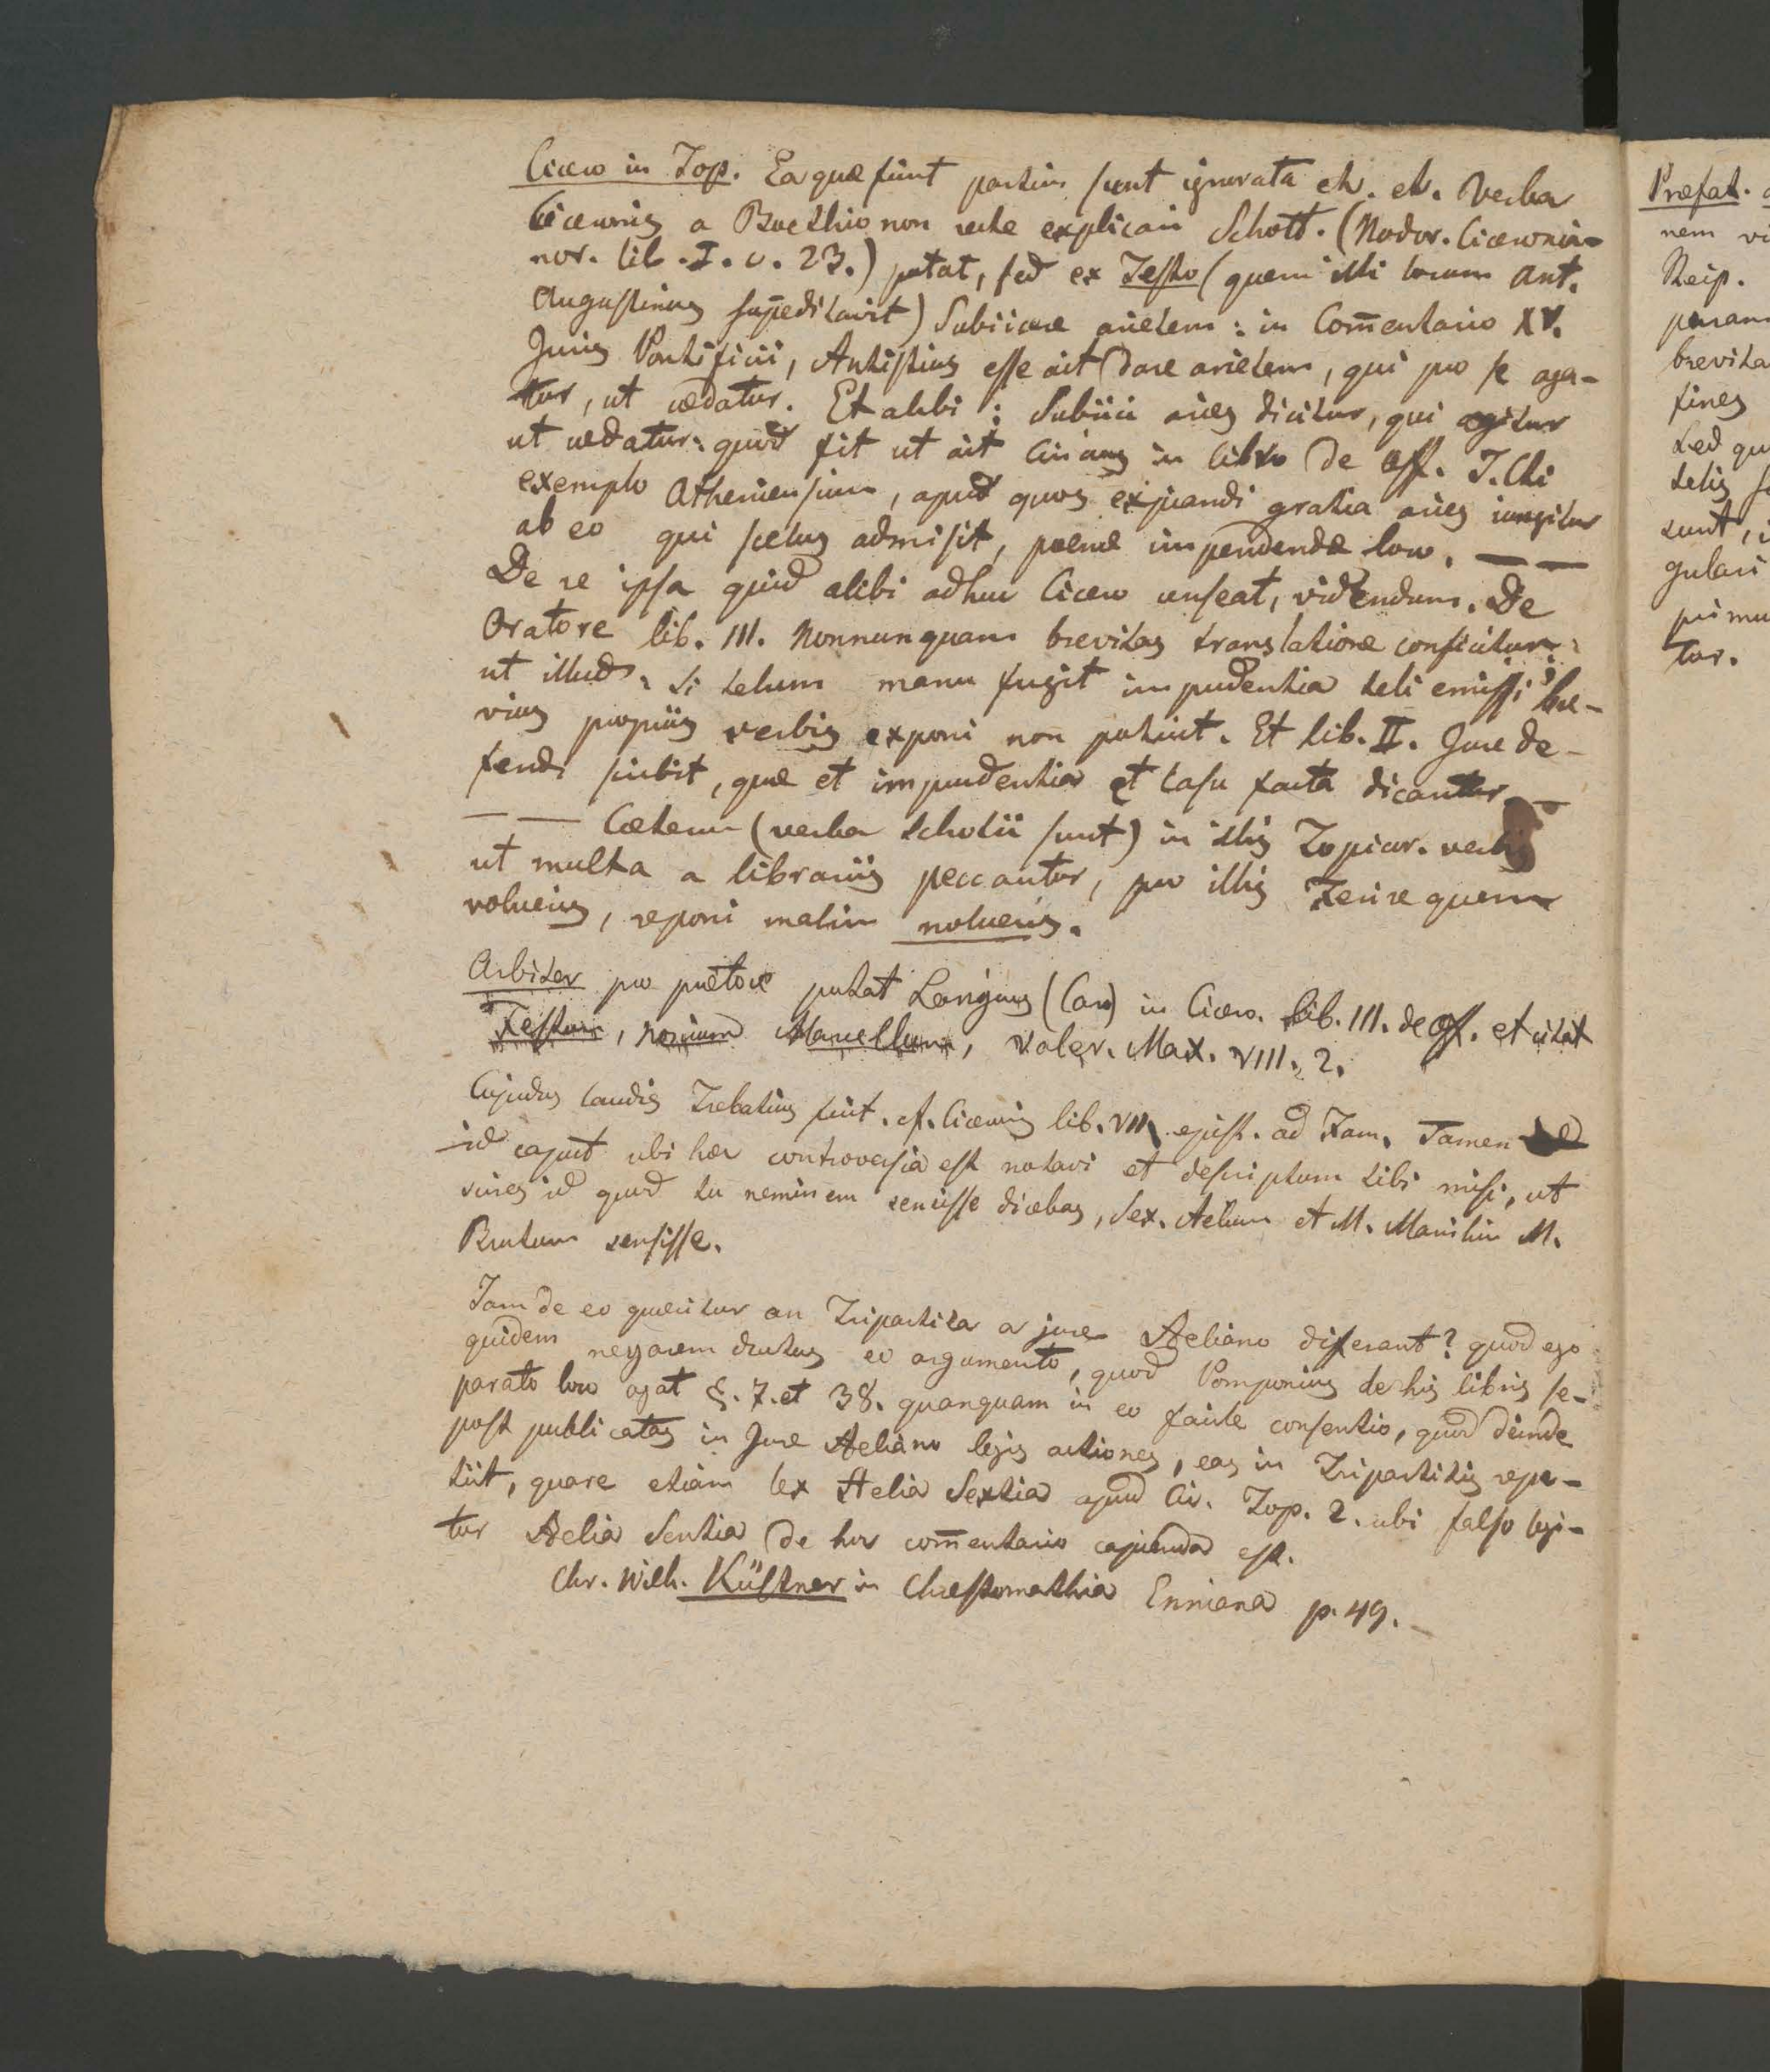 Cicero in Top. Ea quæ fiunt partim sunt ignorata etc. etc. Verba
Ciceronis a Boethio non recte explicari Schott. (Nodor. Ciceronia-
nor. lib. I. c. 23.) putat, sed ex Festo (quem illi locum Ant.
Augustinus suppeditavit) Subiicere arietem: in Com̄entario XV.
Juris Pontificii, Antistius esse ait dare arietem, qui pro se aga-
tur, ut cædatur. Et alibi: Subiici aries dicitur, qui agitur
ut cædatur: quod fit ut ait Cincius in libro de off. J.Cti
exemplo Atheniensium, apud quos expiandi gratia aries iungitur
ab eo qui scelus admisit, poenæ impendendæ loco. — —
De re ipsa quid alibi adhuc Cicero censeat, videndum. De
Oratore lib. III. Nonnunquam brevitas translatione conficitur:
ut illud: Si telum manu fugit imprudentia teli emissi bre-
vius propriis verbis exponi non potuit. Et lib. II. Jure de-
fendi scribit, quæ et imprudentia et casu facta dicantur. —
— — Cæterum (verba Schotii sunt) in illis Topicor. verbis
ut multa a librariis peccantur, pro illis Ferire quem
volueris, reponi malim nolueris.
Arbiter pro prætore putat Langius (Car) in Cicero. lib. III. de off. et citat
Festum, Nonium Marcellum, Valer. Max. VIII. 2.
Cujusdus laudis Trebatius fuit. cf. Ciceronis lib. VII. epist. ad Fam. Tamen
id caput ubi hæc controversia est notavi et descriptum tibi misi, ut
scires id quod tu neminem sensisse dicebas, Sex. Aelium et M. Manilium M.
Brutum sensisse.
Jam de eo quæritur an Tripartita a jure Aeliano differant? quod ego
quidem negarem ductus eo argumento, quod Pomponius de his libris se-
parato loco agat §. 7. et 38. quanquam in eo facile consentio, quod deinde
post publicatas in Jure Aeliano legis actiones, eas in Tripartitis repe-
tiit, quare etiam lex Aelia Sextia apud Cic. Top. 2. ubi falso legi-
tur Aelia Sentia de hoc com̄entario capienda est.
Chr. Wilh. Küstner in Chrestomathia Enniana p. 49. —
Præfat.
nem
Reip.
brevita
fines
sed
telis
sunt,
gulari
primu
tur.